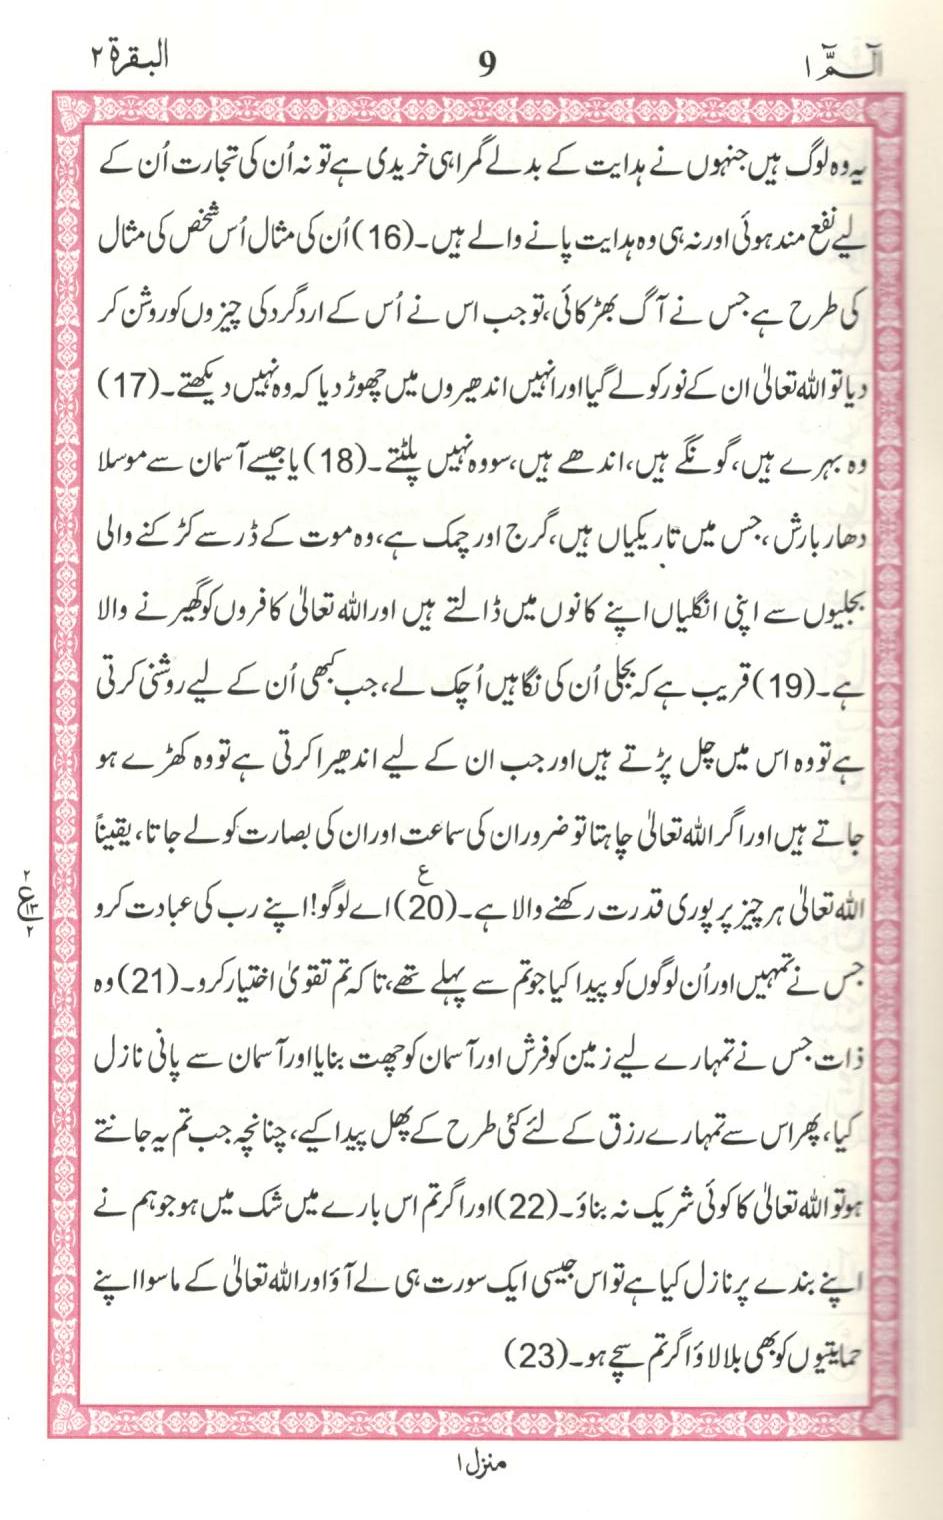 الٓمّٓ ۱ 9 البقرة ۲
یہ وہ لوگ ہیں جنہوں نے ہدایت کے بدلے گمراہی خریدی ہے تو نہ اُن کی تجارت اُن کے
لیے نفع مند ہوئی اور نہ ہی وہ ہدایت پانے والے ہیں۔(16) اُن کی مثال اُس شخص کی مثال
کی طرح ہے جس نے آگ بھڑکائی، تو جب اس نے اُس کے اردگرد کی چیزوں کو روشن کر
دیا تو اللہ تعالیٰ ان کے نور کو لے گیا اور انہیں اندھیروں میں چھوڑ دیا کہ وہ نہیں دیکھتے۔(17)
وہ بہرے ہیں، گونگے ہیں، اندھے ہیں، سو وہ نہیں پلٹتے۔(18) یا جیسے آسمان سے موسلا
دھار بارش، جس میں تاریکیاں ہیں، گرج اور چمک ہے، وہ موت کے ڈر سے کڑکنے والی
بجلیوں سے اپنی انگلیاں اپنے کانوں میں ڈالتے ہیں اور اللہ تعالیٰ کافروں کو گھیرنے والا
ہے۔(19) قریب ہے کہ بجلی اُن کی نگاہیں اُچک لے، جب کبھی اُن کے لیے روشنی کرتی
ہے تو وہ اس میں چل پڑتے ہیں اور جب ان کے لیے اندھیرا کرتی ہے تو وہ کھڑے ہو
جاتے ہیں اور اگر اللہ تعالیٰ چاہتا تو ضرور ان کی سماعت اور ان کی بصارت کو لے جاتا، یقیناً
اللہ تعالیٰ ہر چیز پر پوری قدرت رکھنے والا ہے۔(20) ع اے لوگو! اپنے رب کی عبادت کرو
۲ ع ۱۳ ۲
جس نے تمہیں اور اُن لوگوں کو پیدا کیا جو تم سے پہلے تھے، تاکہ تم تقویٰ اختیار کرو۔(21) وہ
ذات جس نے تمہارے لیے زمین کو فرش اور آسمان کو چھت بنایا اور آسمان سے پانی نازل
کیا، پھر اس سے تمہارے رزق کے لئے کئی طرح کے پھل پیدا کیے، چنانچہ جب تم یہ جانتے
ہو تو اللہ تعالیٰ کا کوئی شریک نہ بناؤ۔(22) اور اگر تم اس بارے میں شک میں ہو جو ہم نے
اپنے بندے پر نازل کیا ہے تو اس جیسی ایک سورت ہی لے آؤ اور اللہ تعالیٰ کے ماسوا اپنے
حمایتیوں کو بھی بلا لاؤ اگر تم سچے ہو۔(23)
منزل ۱